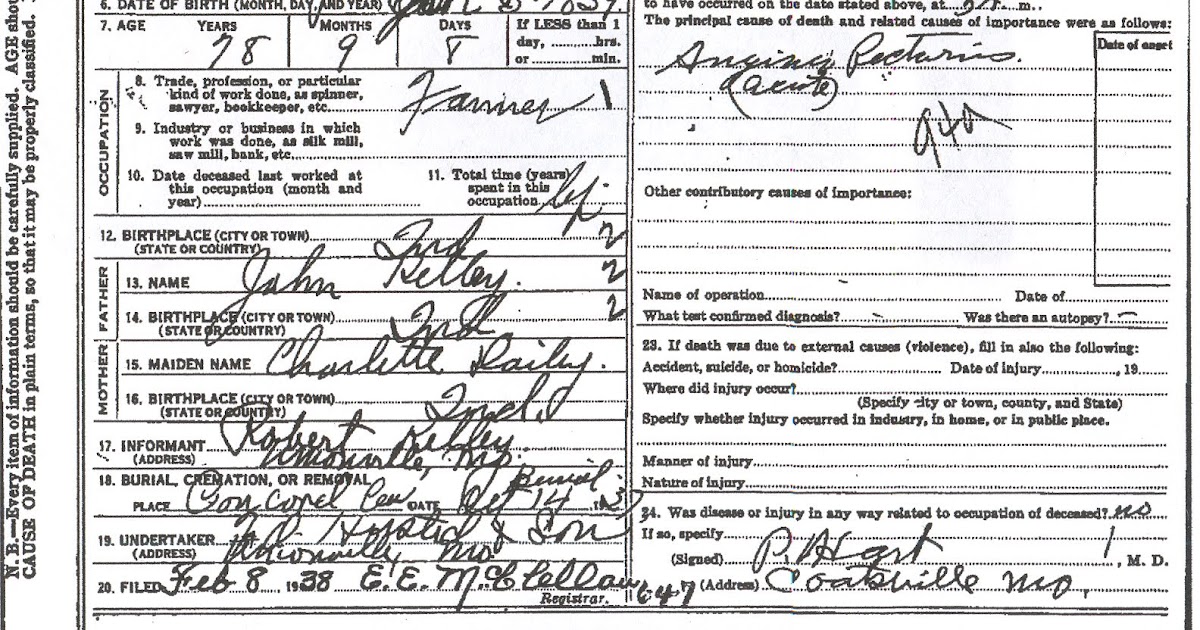 6. DATE OF BIRTH (MONTH, DAY, AND YEAR) Jan
7. AGE YEARS MONTHS DAYS If LESS than 1
day, ............hrs.
or ............min.
78 9 8
OCCUPATION
8. Trade, profession, or particular
kind of work done, as spinner,
sawyer, bookkeeper, etc. Farmer 1
9. Industry or business in which
work was done, as silk mill,
saw mill, bank, etc.
10. Date deceased last worked at
this occupation (month and
year)
11. Total time (years)
spent in this
occupation
12. BIRTHPLACE (CITY OR TOWN)
(STATE OR COUNTRY) Ind 2
FATHER
13. NAME John Kelley. 2
14. BIRTHPLACE (CITY OR TOWN)
(STATE OR COUNTRY) Ind 2
MOTHER
15. MAIDEN NAME Charlotte Daily.
16. BIRTHPLACE (CITY OR TOWN)
(STATE OR COUNTRY) Ind.
17. INFORMANT Robert Kelley
(ADDRESS) Unionville, Mo.
18. BURIAL, CREMATION, OR REMOVAL Burial
PLACE Concord Cem DATE Oct 14 19
19. UNDERTAKER & Son
(ADDRESS) Unionville, Mo.
20. FILED Feb 8, 1938 E. E. McClellan
Registrar.
N.B.—Every item of information should be carefully supplied. AGE
CAUSE OF DEATH in plain terms, so that it may be properly classified.
to have occurred on the date stated above, at m.
The principal cause of death and related causes of importance were as follows:
Date of onset
Angina Pectoris.
(acute)
94a
Other contributory causes of importance:
Name of operation Date of
What test confirmed diagnosis? Was there an autopsy?
23. If death was due to external causes (violence), fill in also the following:
Accident, suicide, or homicide? Date of injury , 19
Where did injury occur?
(Specify city or town, county, and State)
Specify whether injury occurred in industry, in home, or in public place.
Manner of injury
Nature of injury
24. Was disease or injury in any way related to occupation of deceased? no
If so, specify
(Signed) P. Hart , M. D.
647 (Address) Coatsville Mo.